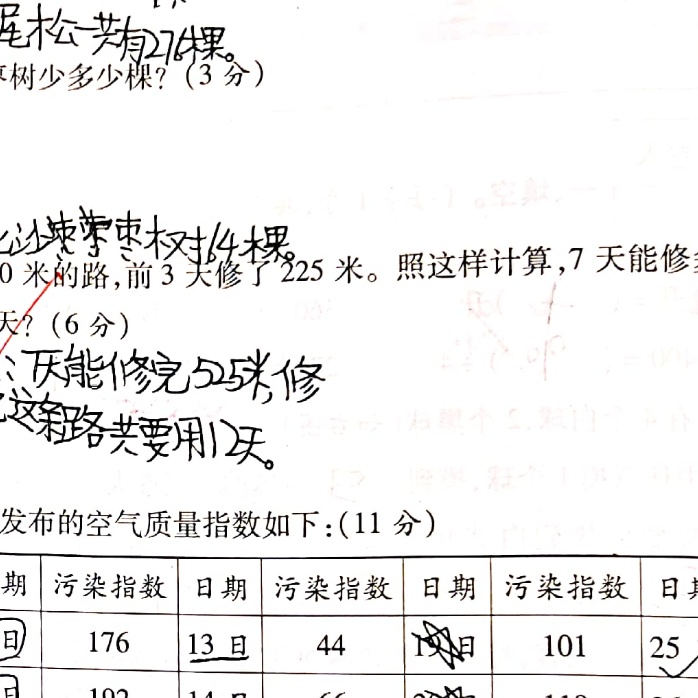 尾松一共有276棵。
树少多少棵?(3 分)
比沙棘少枣树164棵。
0 米的路,前 3 天修了 225 米。照这样计算,7 天能修
天?(6 分)
天能修完525米,修
这条路共要用12天。
发布的空气质量指数如下:(11 分)
期 污染指数 日期 污染指数 日期 污染指数 日
日 176 13 日 44 19日 101 25
192 14 日 66 110